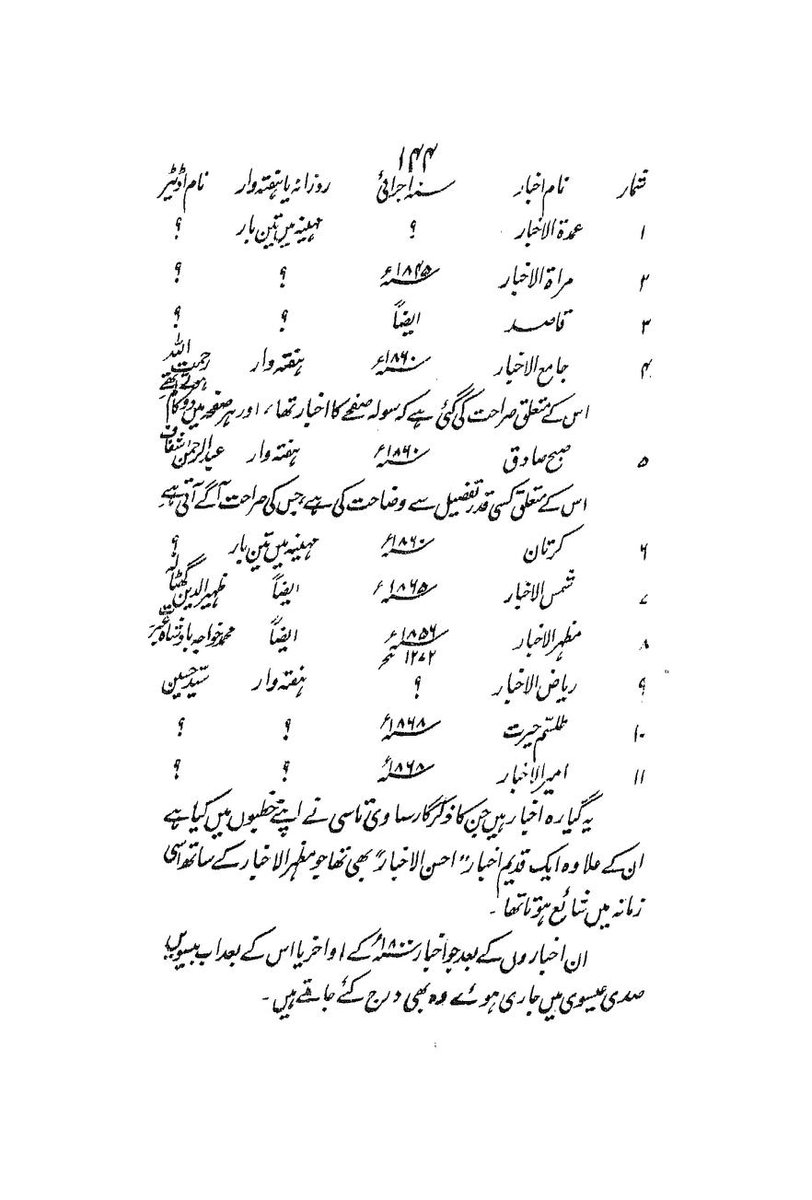 ۱۴۴
شمار نام اخبار سنہ اجرائی روزانہ یا ہفتہ وار نام اڈیٹر
۱ عمدۃ الاخبار ؟ مہینہ میں تین بار ؟
۲ مراۃ الاخبار ۱۸۴۵ء ؟ ؟
۳ قاصد ایضاً ؟ ؟
۴ جامع الاخبار ۱۸۶۰ء ہفتہ وار رحمت اللہ
اس کے متعلق صراحت کی گئی ہے کہ سولہ صفحے کا اخبار تھا، اور ہر صفحہ میں دو کالم ہوتے تھے
۵ صبح صادق ۱۸۶۰ء ہفتہ وار عبدالرحمن شفاف
اس کے متعلق کسی قدر تفصیل سے وضاحت کی ہے جس کی صراحت آگے آتی ہے۔
۶ کرتان ۱۸۶۰ء مہینہ میں تین بار ؟
۷ شمس الاخبار ۱۸۶۵ء ایضاً ظہیر الدین
۸ مظہر الاخبار ۱۸۵۶ء ۱۲۷۲ ایضاً محمد خواجہ بادشاہ عبرت
۹ ریاض الاخبار ؟ ہفتہ وار سید حسین
۱۰ طلسم حیرت ۱۸۶۸ء ؟ ؟
۱۱ امیر الاخبار ۱۸۶۸ء ؟ ؟
یہ گیارہ اخبار ہیں جن کا ذکر گارساوی تاسی نے اپنے خطبوں میں کیا ہے
ان کے علاوہ ایک قدیم اخبار "احسن الاخبار" بھی تھا جو مظہر الاخبار کے ساتھ اسی
زمانہ میں شائع ہوتا تھا۔
ان اخباروں کے بعد جو اخبار ۱۸۰۰ء کے اواخر یا اس کے بعد اب بیسویں
صدی عیسوی میں جاری ہوئے وہ بھی درج کئے جاتے ہیں۔